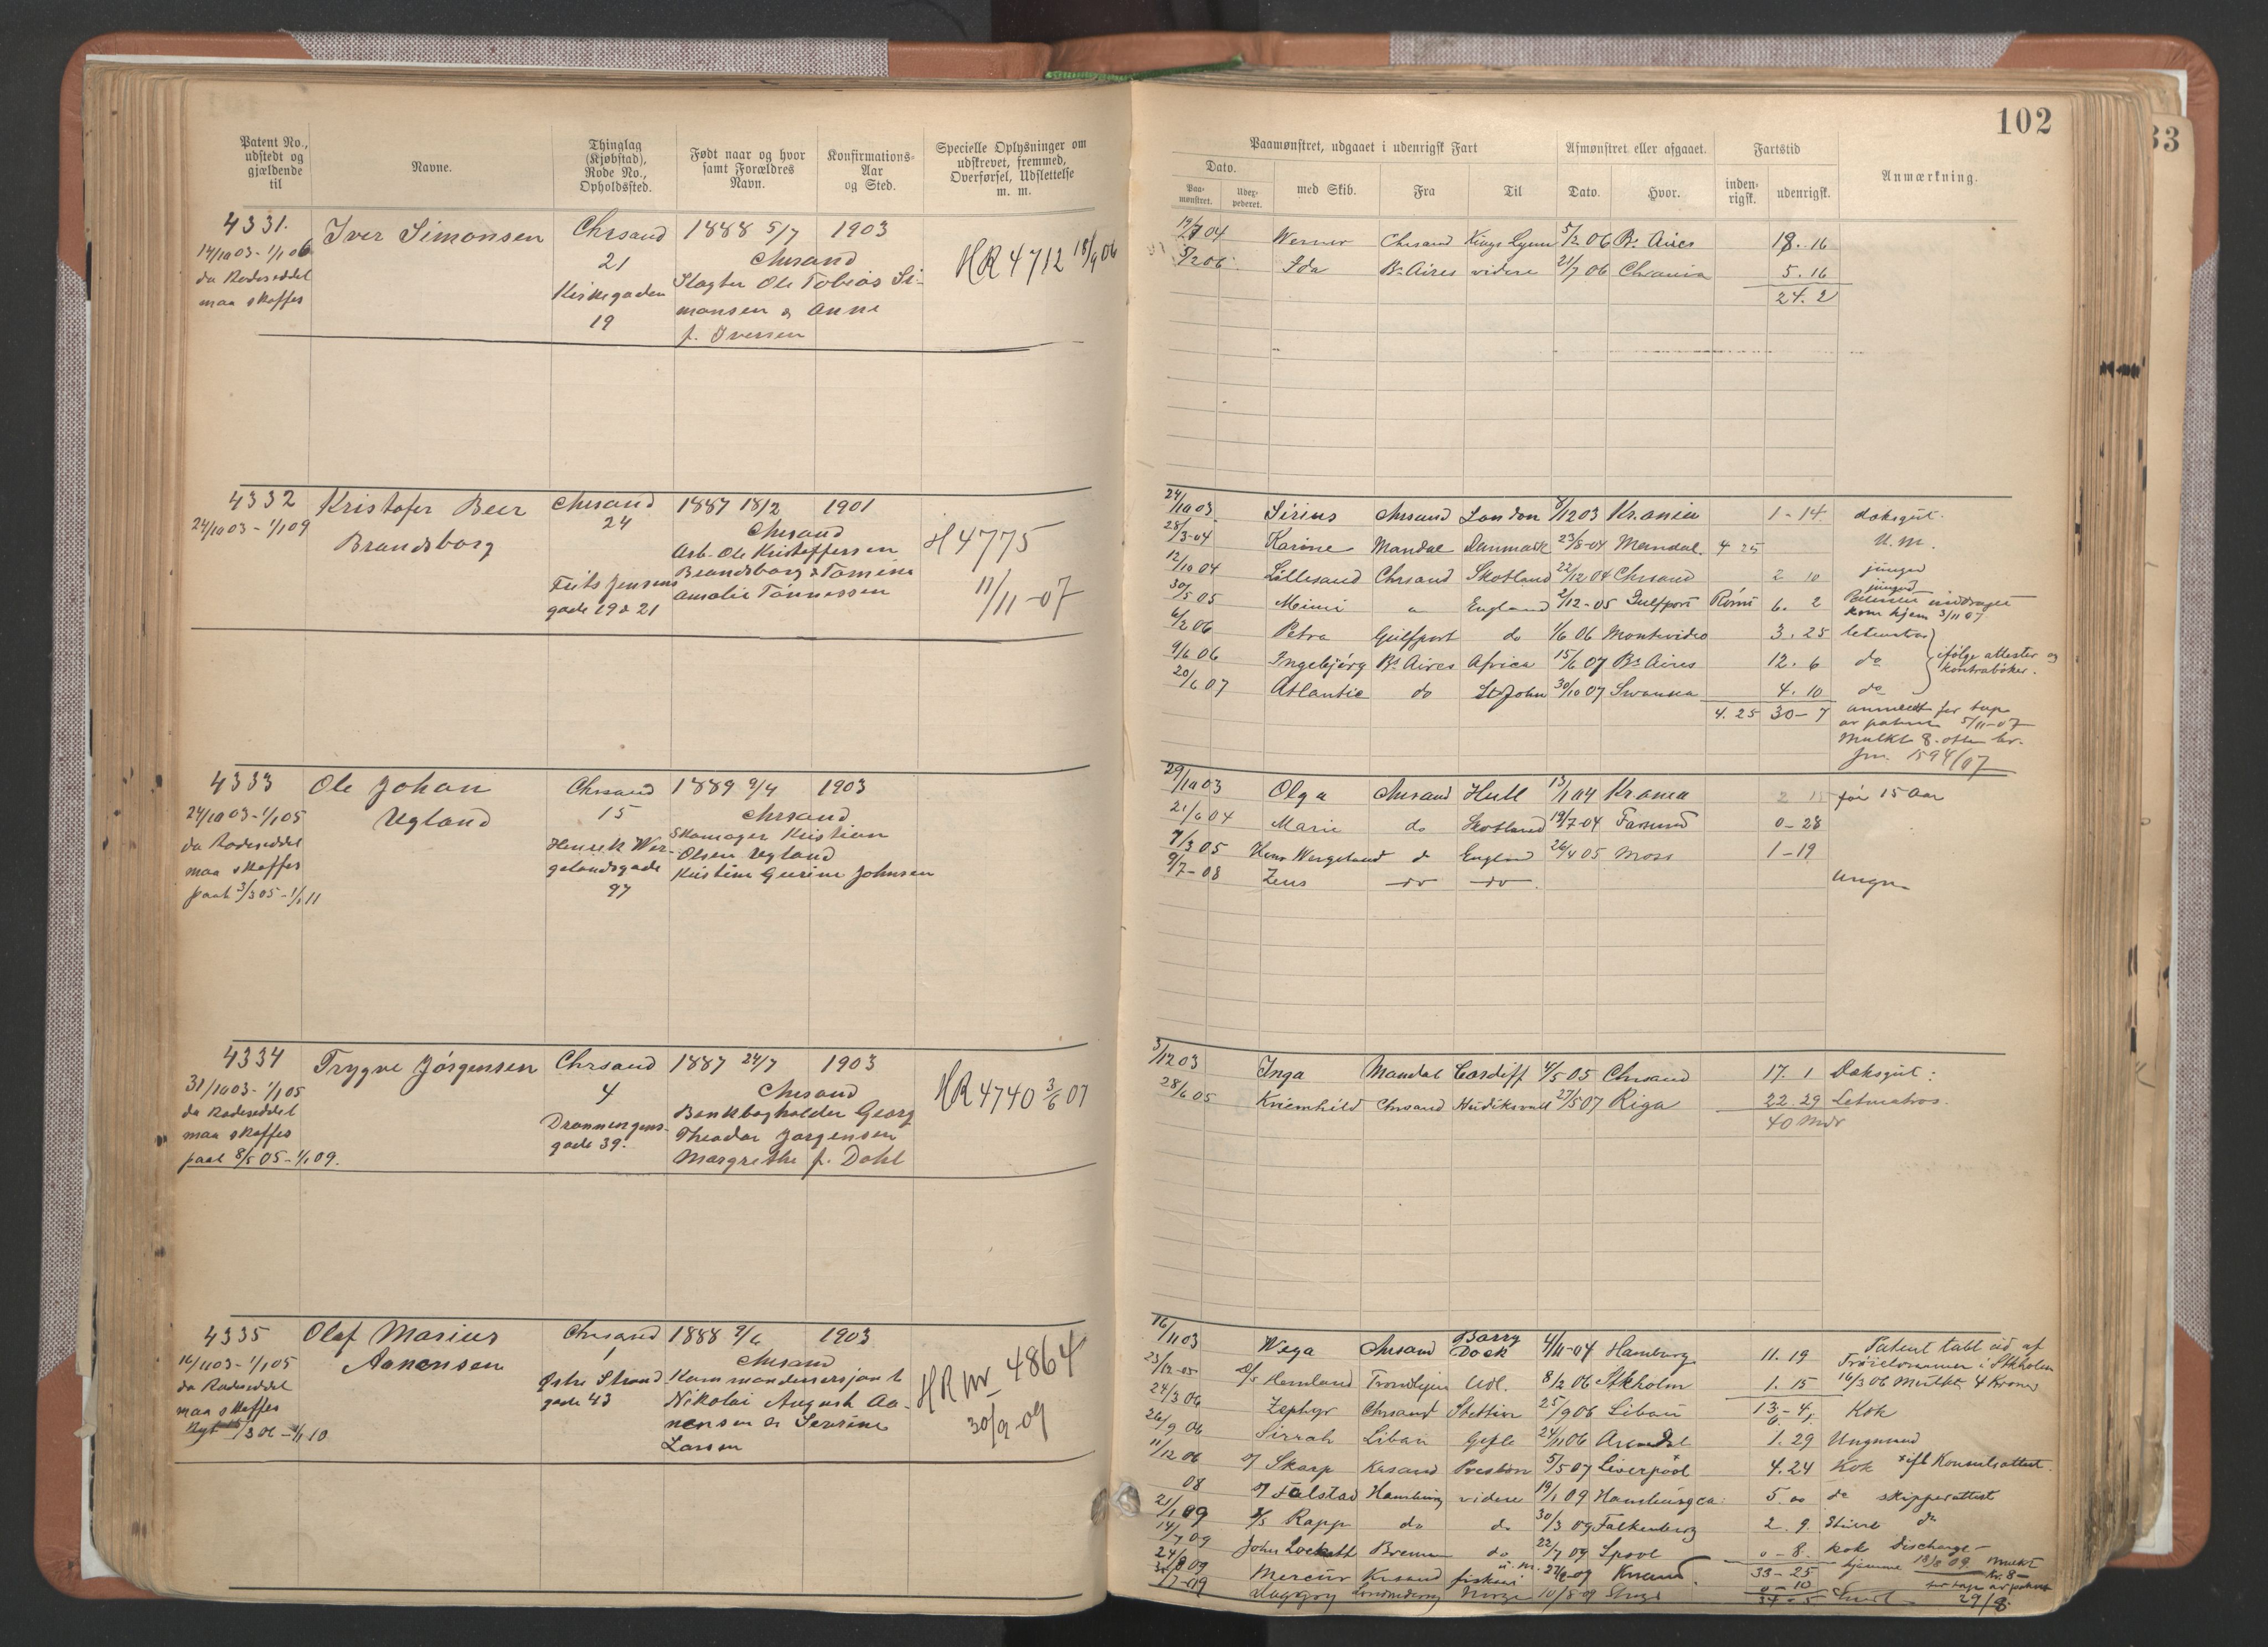 102
Patent No., udstedt og gjældende til
Navne.
Thinglag (Kjøbstad), Rode No., Opholdssted.
Født naar og hvor samt Forældres Navn.
Konfirmations-Aar og Sted.
Specielle Oplysninger om udskrevet, fremmed, Overførsel, Udslettelse m. m.
Paamønstret, udgaaet i udenrigsk Fart
Afmønstret eller afgaaet.
Fartstid
Anmærkning.
Dato.
Paa-mønstret.
med Skib.
Fra
Til
Dato.
Hvor.
inden-rigsk.
udenrigsk.
4331.
14/10 03 - 1/1 06
da Rodeseddel
maa skaffes
Iver Simonsen
Chrsand
21
Kirkegaden
19
1888 5/7 1903
Chrsand
Slagter Ole Tobias Si-
monsen og Anne
f. Iversen
HR 4712 18/9 06
Werner Chrsand Kings Lynn 5/2 06 Bs Aires 18. 16
5/2 06 Ida Bs Aires videre 21/7 06 Chrania 5. 16
24. 2
4332
24/10 03 - 1/1 09
Kristofer Beer
Brandsborg
Chrsand
24
Frits Jensens
gade 19 & 21
1887 18/2 1901
Chrsand
Arb. Ole Kristoffersen
Brandsborg & Tomine
Amalie Tønnessen
H 4775
11/11-07
24/10 03 Sirius Chrsand London 8/12 03 Kr.ania 1-14 doksgut.
28/3-04 Karine Mandal Danmark 23/8-04 Mandal. 4 25 U. M.
12/10 04 Lillesand Chrsand Skotland 22/12 04 Chrsand 2 10 jungm
30/5 05 Mimi " England 2/12-05 Gulfport Römt 6. 2 jungmd
inddraget
kom hjem 3/11 07
6/2 06 Petra Gulfport do 1/6 06 Montevideo 3. 25 letmatros
9/6 06 Ingebjørg Bs Aires Africa 15/6 07 Bs Aires 12. 6 do ifølge attester og kontrabøker.
20/6 07 Atlantic do St John 30/10 07 Swansea 4. 10 do
4. 25 30-7 anmeldt for tap
av patent 5/11-07
Mulkt 8. otte kr.
Jnr. 1594/07
4333
24/10 03 - 1/1 05
da Rodeseddel
maa skaffes
paat 3/3 05 - 1/1 11
Ole Johan
Ugland
Chrsand
15
Henrik Wer-
gelandsgade
97
1889 9/4 1903
Chrsand
Skomager Kristian
Olsen Ugland
Kristine Gurine Johnsen
29/10 03 Olga Chrsand Hull 13/1 04 Krania 2 15 før 15 Aar
21/6 04 Marie do Skotland 19/7-04 Farsund 0-28
7/3 05 Henr Wergeland do England 26/4 05 Moss 1-19
9/7-08 Zeus do do Ungm
4334
31/10 03 - 1/1 05
da Rodeseddel
maa skaffes
paat 8/5 05 - 1/1 09.
Trygve Jørgensen
Chrsand
4
Dronningens-
gade 39.
1887 24/7 1903
Chrsand
Bankbogholder Georg
Theodor Jørgensen
Margrethe f. Dahl
HR 4740 3/6 07
3/12 03 Inga Mandal Cardiff 4/5 05 Chrsand 17. 1 Doksgut:
28/6 05 Kriemhild Chrsand Hudiksvall 27/5 07 Riga 22. 29 Letmatros.
40 Mdr
4335
16/11 03 - 1/1 05
da Rodeseddel
maa skaffes
Nyt 15/3 06 - 1/1 10
Olaf Marius
Aanensen
Chrsand
1
Østre Strand-
gade 43
1888 9/6 1903
Chrsand
Kommandersersjant
Nikolai August Aa-
nensen og Severine
Larsen
HR nr 4864
30/9-09
16/11 03 Wega Chrsand Barry Dock 4/11-04 Hamburg 11. 19 Patent tabt
i Stkholm
23/12-05 D/S Hemland Trondhjem Udl. 8/2 06 Stkholm 1. 15 16/3 06 Mulkt 4 Kroner
24/3 06 Zephyr Chrsand Stettin 25/9 06 Libau 13-4 Kok
26/9 06 Sirrah Libau Gefle 24/11 06 Arendal 1. 29 Ungmand
11/12 06 Skarp Krsand Preston 5/5 07 Liverpool 4. 24 Kok ifl Konsulsattest.
08 Falstad Hamburg videre 19/1 09 Hamburg ca: 5. 00 do skipperattest
21/1 09 D/S Rapp do do 30/3 09 Falkenberg 2. 9. do
14/7 09 John Lockett Bremen do 22/7 09 0-8. kok Discharge
24/8 09 Mercur Krsand fiskeri u. m. Krsand. 33-25 hjemme 18/8 09. Mulkt kr. 8-
for tap av patent
Norge 10/8-09 0-10
34-5 29/8